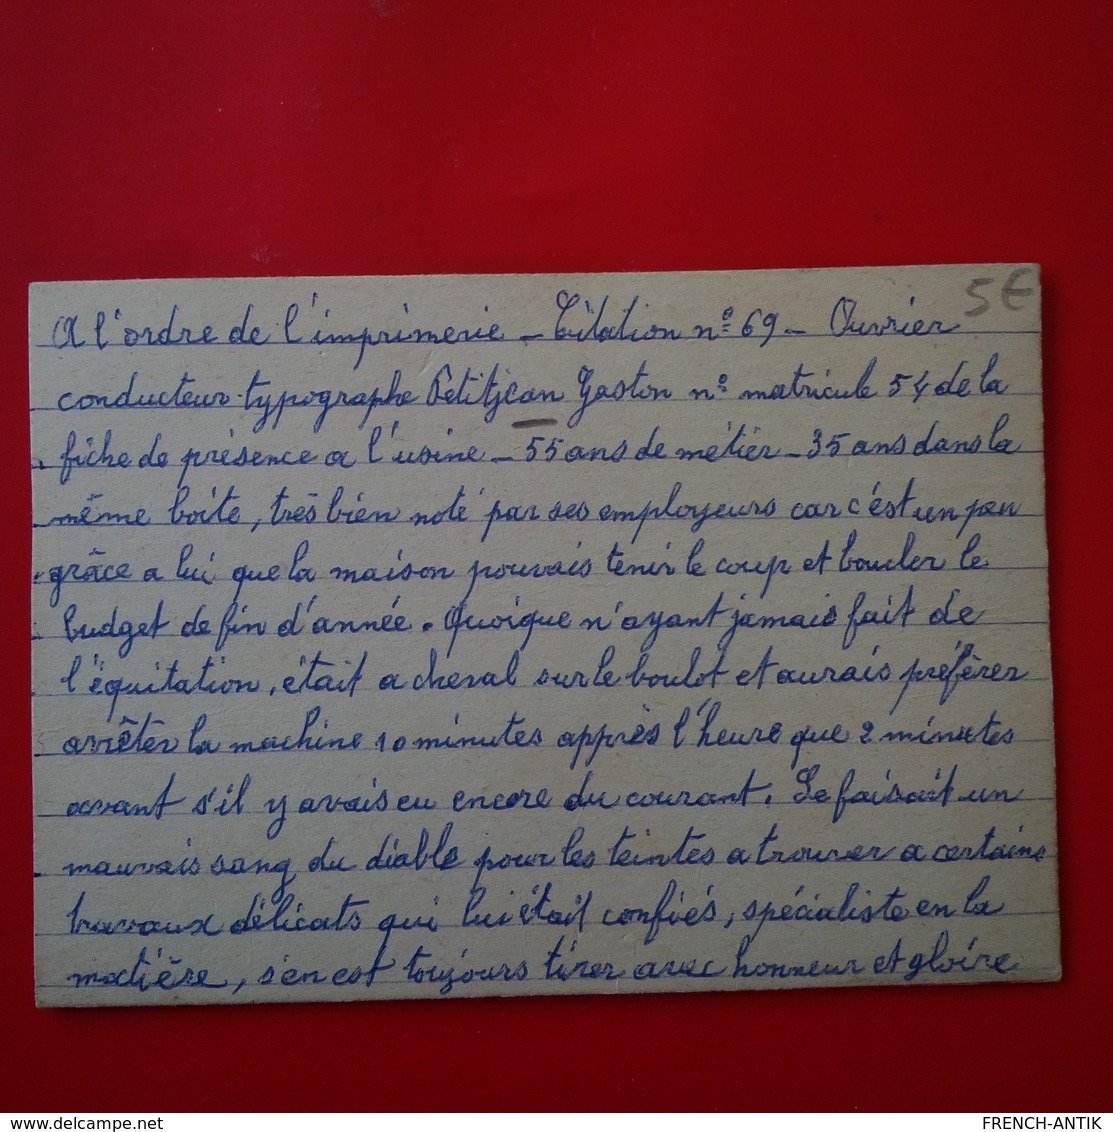 5€
A l'ordre de l'imprimerie - Citation nº 69 - Ouvrier
conducteur-typographe Petitjean Gaston nº matricule 54 de la
fiche de présence a l'usine - 55 ans de métier - 35 ans dans la
même boîte, très bien noté par ses employeurs car c'est un peu
grâce a lui que la maison pouvais tenir le coup et boucler le
budget de fin d'année. Quoique n'ayant jamais fait de
l'équitation, était a cheval sur le boulot et aurais préférer
arrêter la machine 10 minutes apprès l'heure que 2 minutes
avant s'il y avais eu encore du courant. Se faisait un
mauvais sang du diable pour les teintes a trouver a certains
travaux délicats qui lui était confiés, spécialiste en la
matière, s'en est toujours tirer avec honneur et gloire
delcampe.net
FRENCH-ANTIK